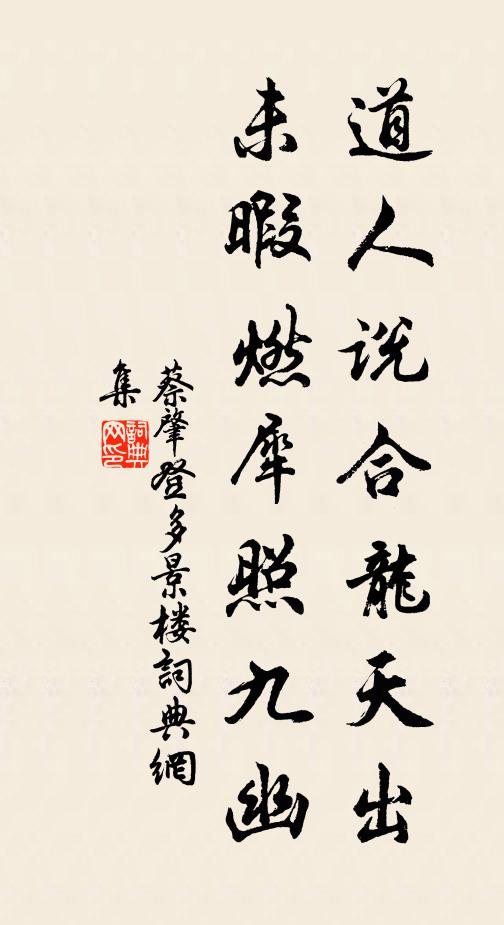 道人说合龍天出
未暇燃犀照九幽
蔡肇登多景楼詞典網
集
詞典網印